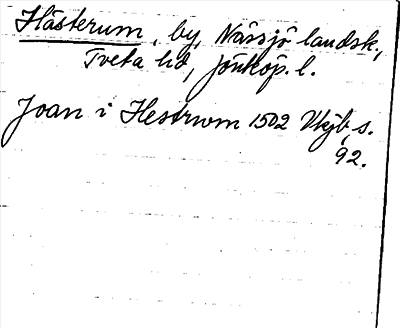 Hästerum, by, Nässjö landsk.,
Tveta hd, Jönköp. l.
Joan i Hestrwm 1502 Vkjb, s.
92.